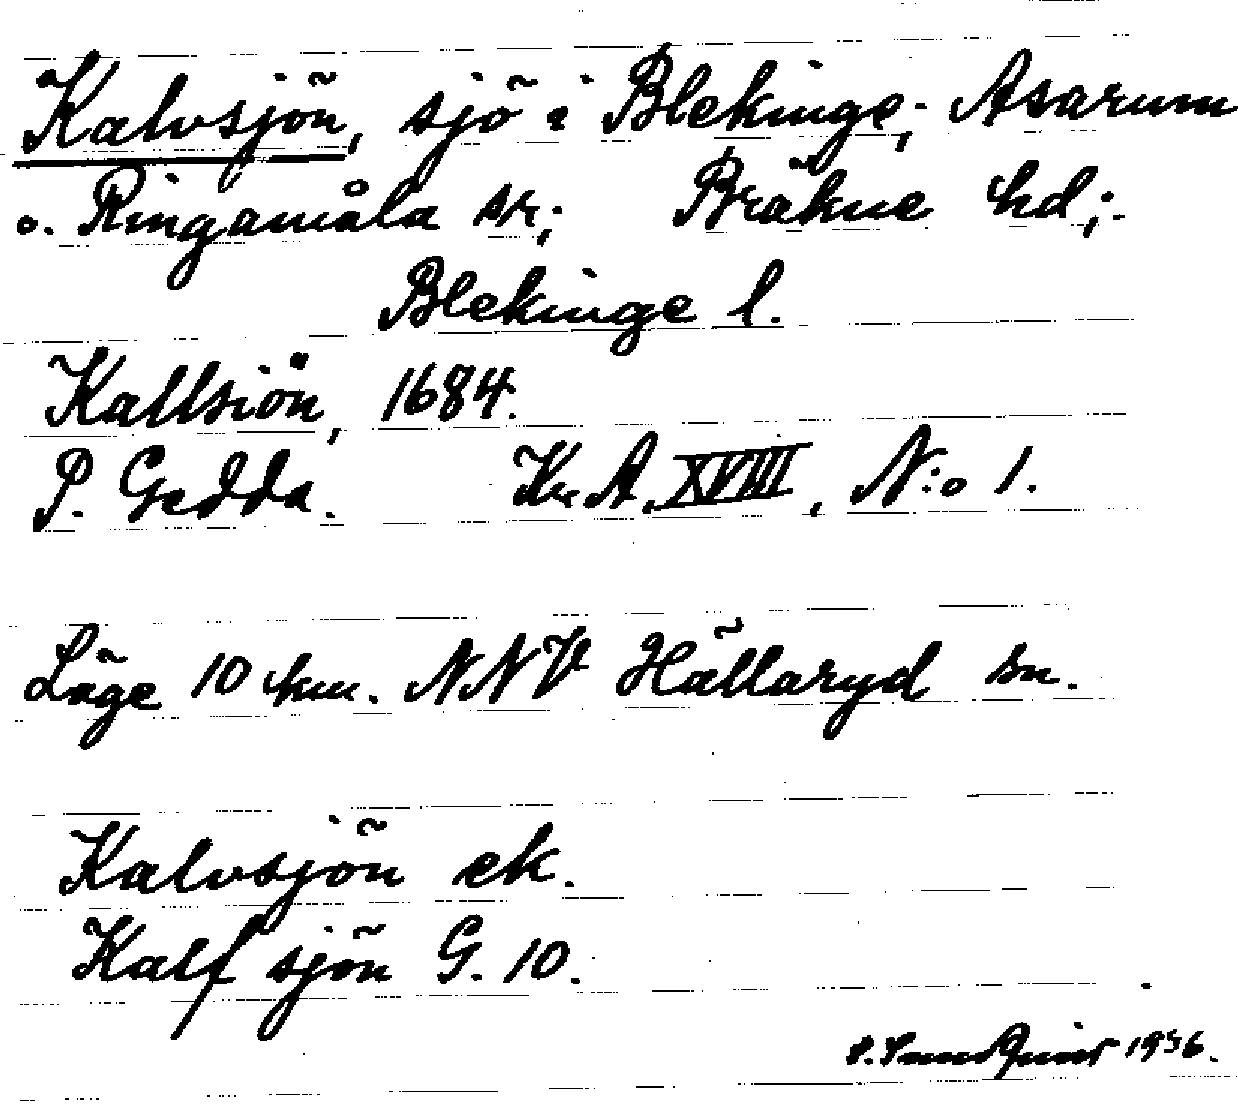 Kalvsjön, sjö i Blekinge; Asarum
o. Ringamåla sn; Bräkne hd;
Blekinge l.
Kallsiön, 1684.
P. Gedda. Kr. A. XVIII, N:o 1.
Läge 10 km. NNV Hällaryd sn.
Kalvsjön ek.
Kalf sjön G. 10.
1936.